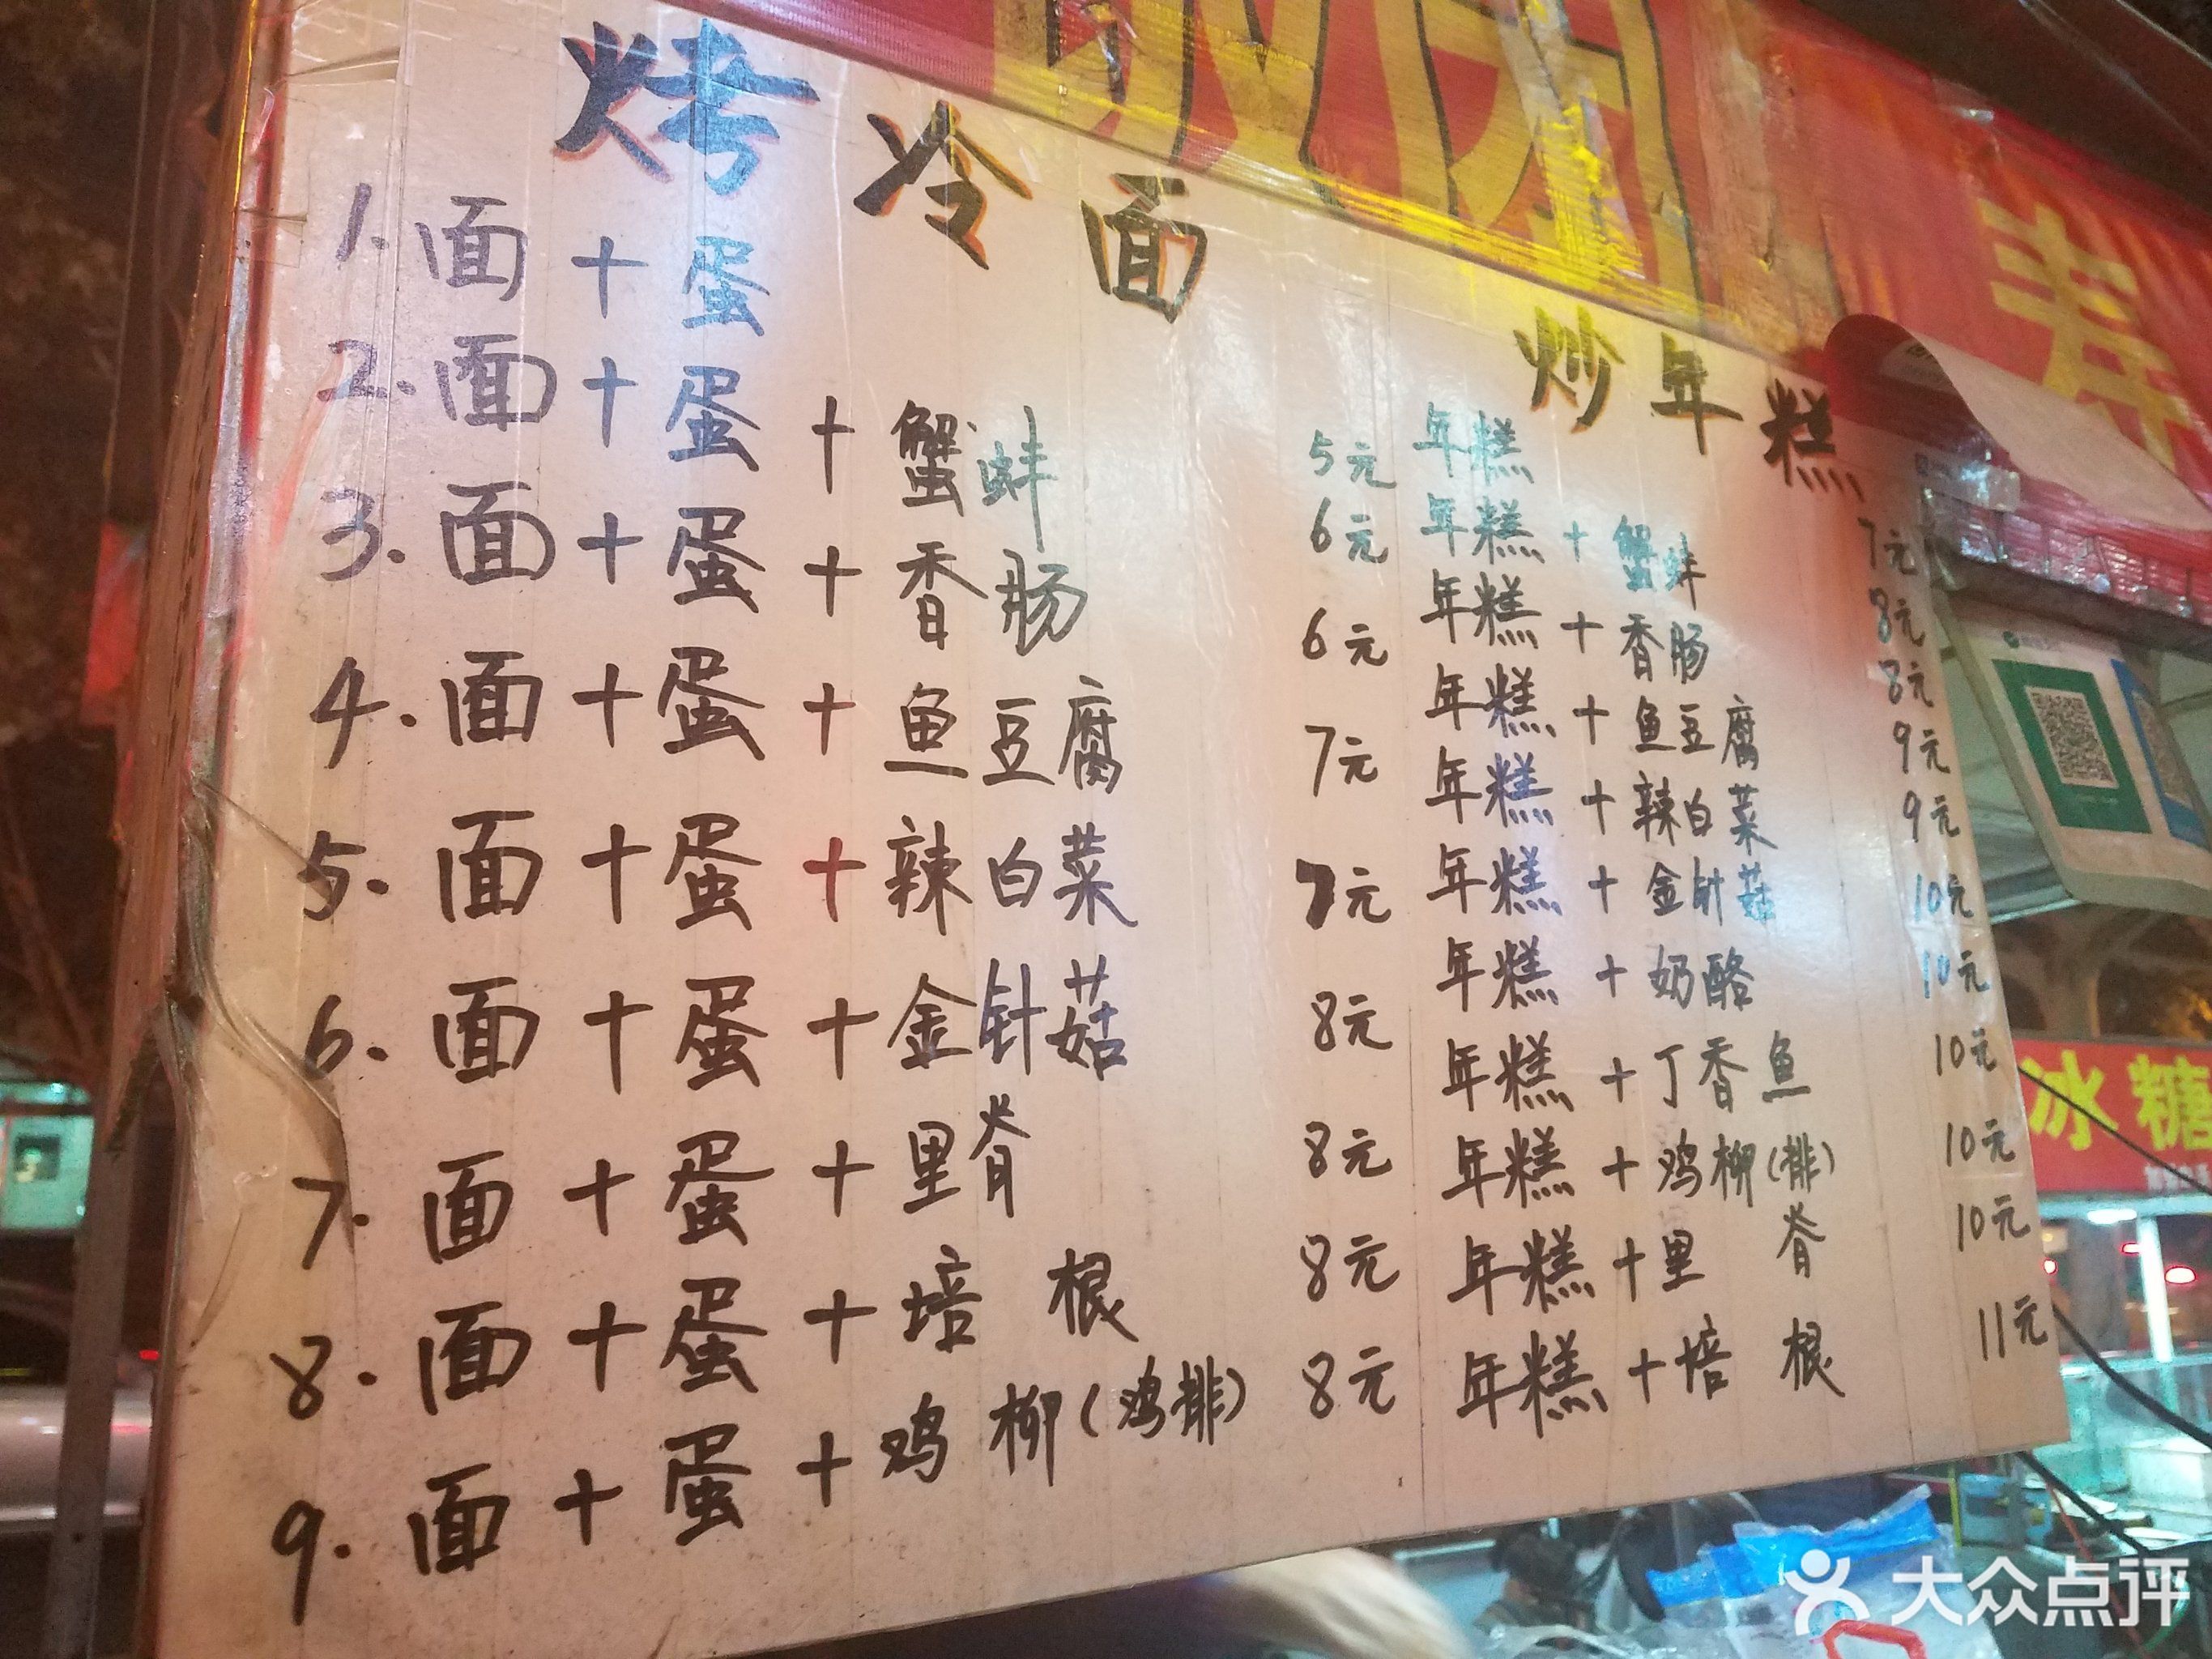 烤冷面
1. 面+蛋 5元
2. 面+蛋+蟹蚌 6元
3. 面+蛋+香肠 6元
4. 面+蛋+鱼豆腐 7元
5. 面+蛋+辣白菜 7元
6. 面+蛋+金针菇 8元
7. 面+蛋+里脊 8元
8. 面+蛋+培根 8元
9. 面+蛋+鸡柳(鸡排) 8元
炒年糕
年糕 7元
年糕+蟹蚌 8元
年糕+香肠 8元
年糕+鱼豆腐 9元
年糕+辣白菜 9元
年糕+金针菇 10元
年糕+奶酪 10元
年糕+丁香鱼 10元
年糕+鸡柳(排) 10元
年糕+里脊 10元
年糕+培根 11元
寿
冰糖
大众点评